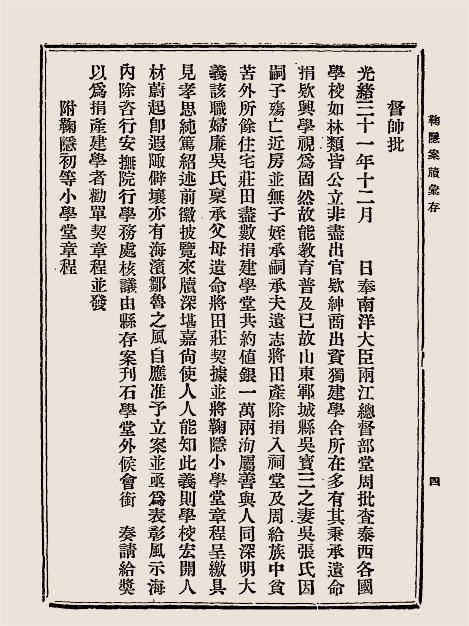 鞠隱案牘彙存
四
督師批
光緒三十一年十二月　　日奉南洋大臣兩江總督部堂周批查泰西各國
學校如林類皆公立非盡出官欵紳商出資獨建學舍所在多有其秉承遺命
捐欵興學視爲固然故能教育普及已故山東鄆城縣吳寶三之妻吳張氏因
嗣子殤亡近房並無子姪承嗣承夫遺志將田產除捐入祠堂及周給族中貧
苦外所餘住宅莊田盡數捐建學堂共約値銀一萬兩洵屬善與人同深明大
義該職婦廉吳氏稟承父母遺命將田莊契據並將鞠隱小學堂章程呈繳具
見孝思純篤紹述前徽披覽來牘深堪嘉尙使人人能知此義則學校宏開人
材蔚起卽遐陬僻壤亦有海濱鄒魯之風自應准予立案並亟爲表彰風示海
內除咨行安撫院行學務處核議由縣存案刊石學堂外候會銜　奏請給獎
以爲捐產建學者勸單契章程並發
附鞠隱初等小學堂章程